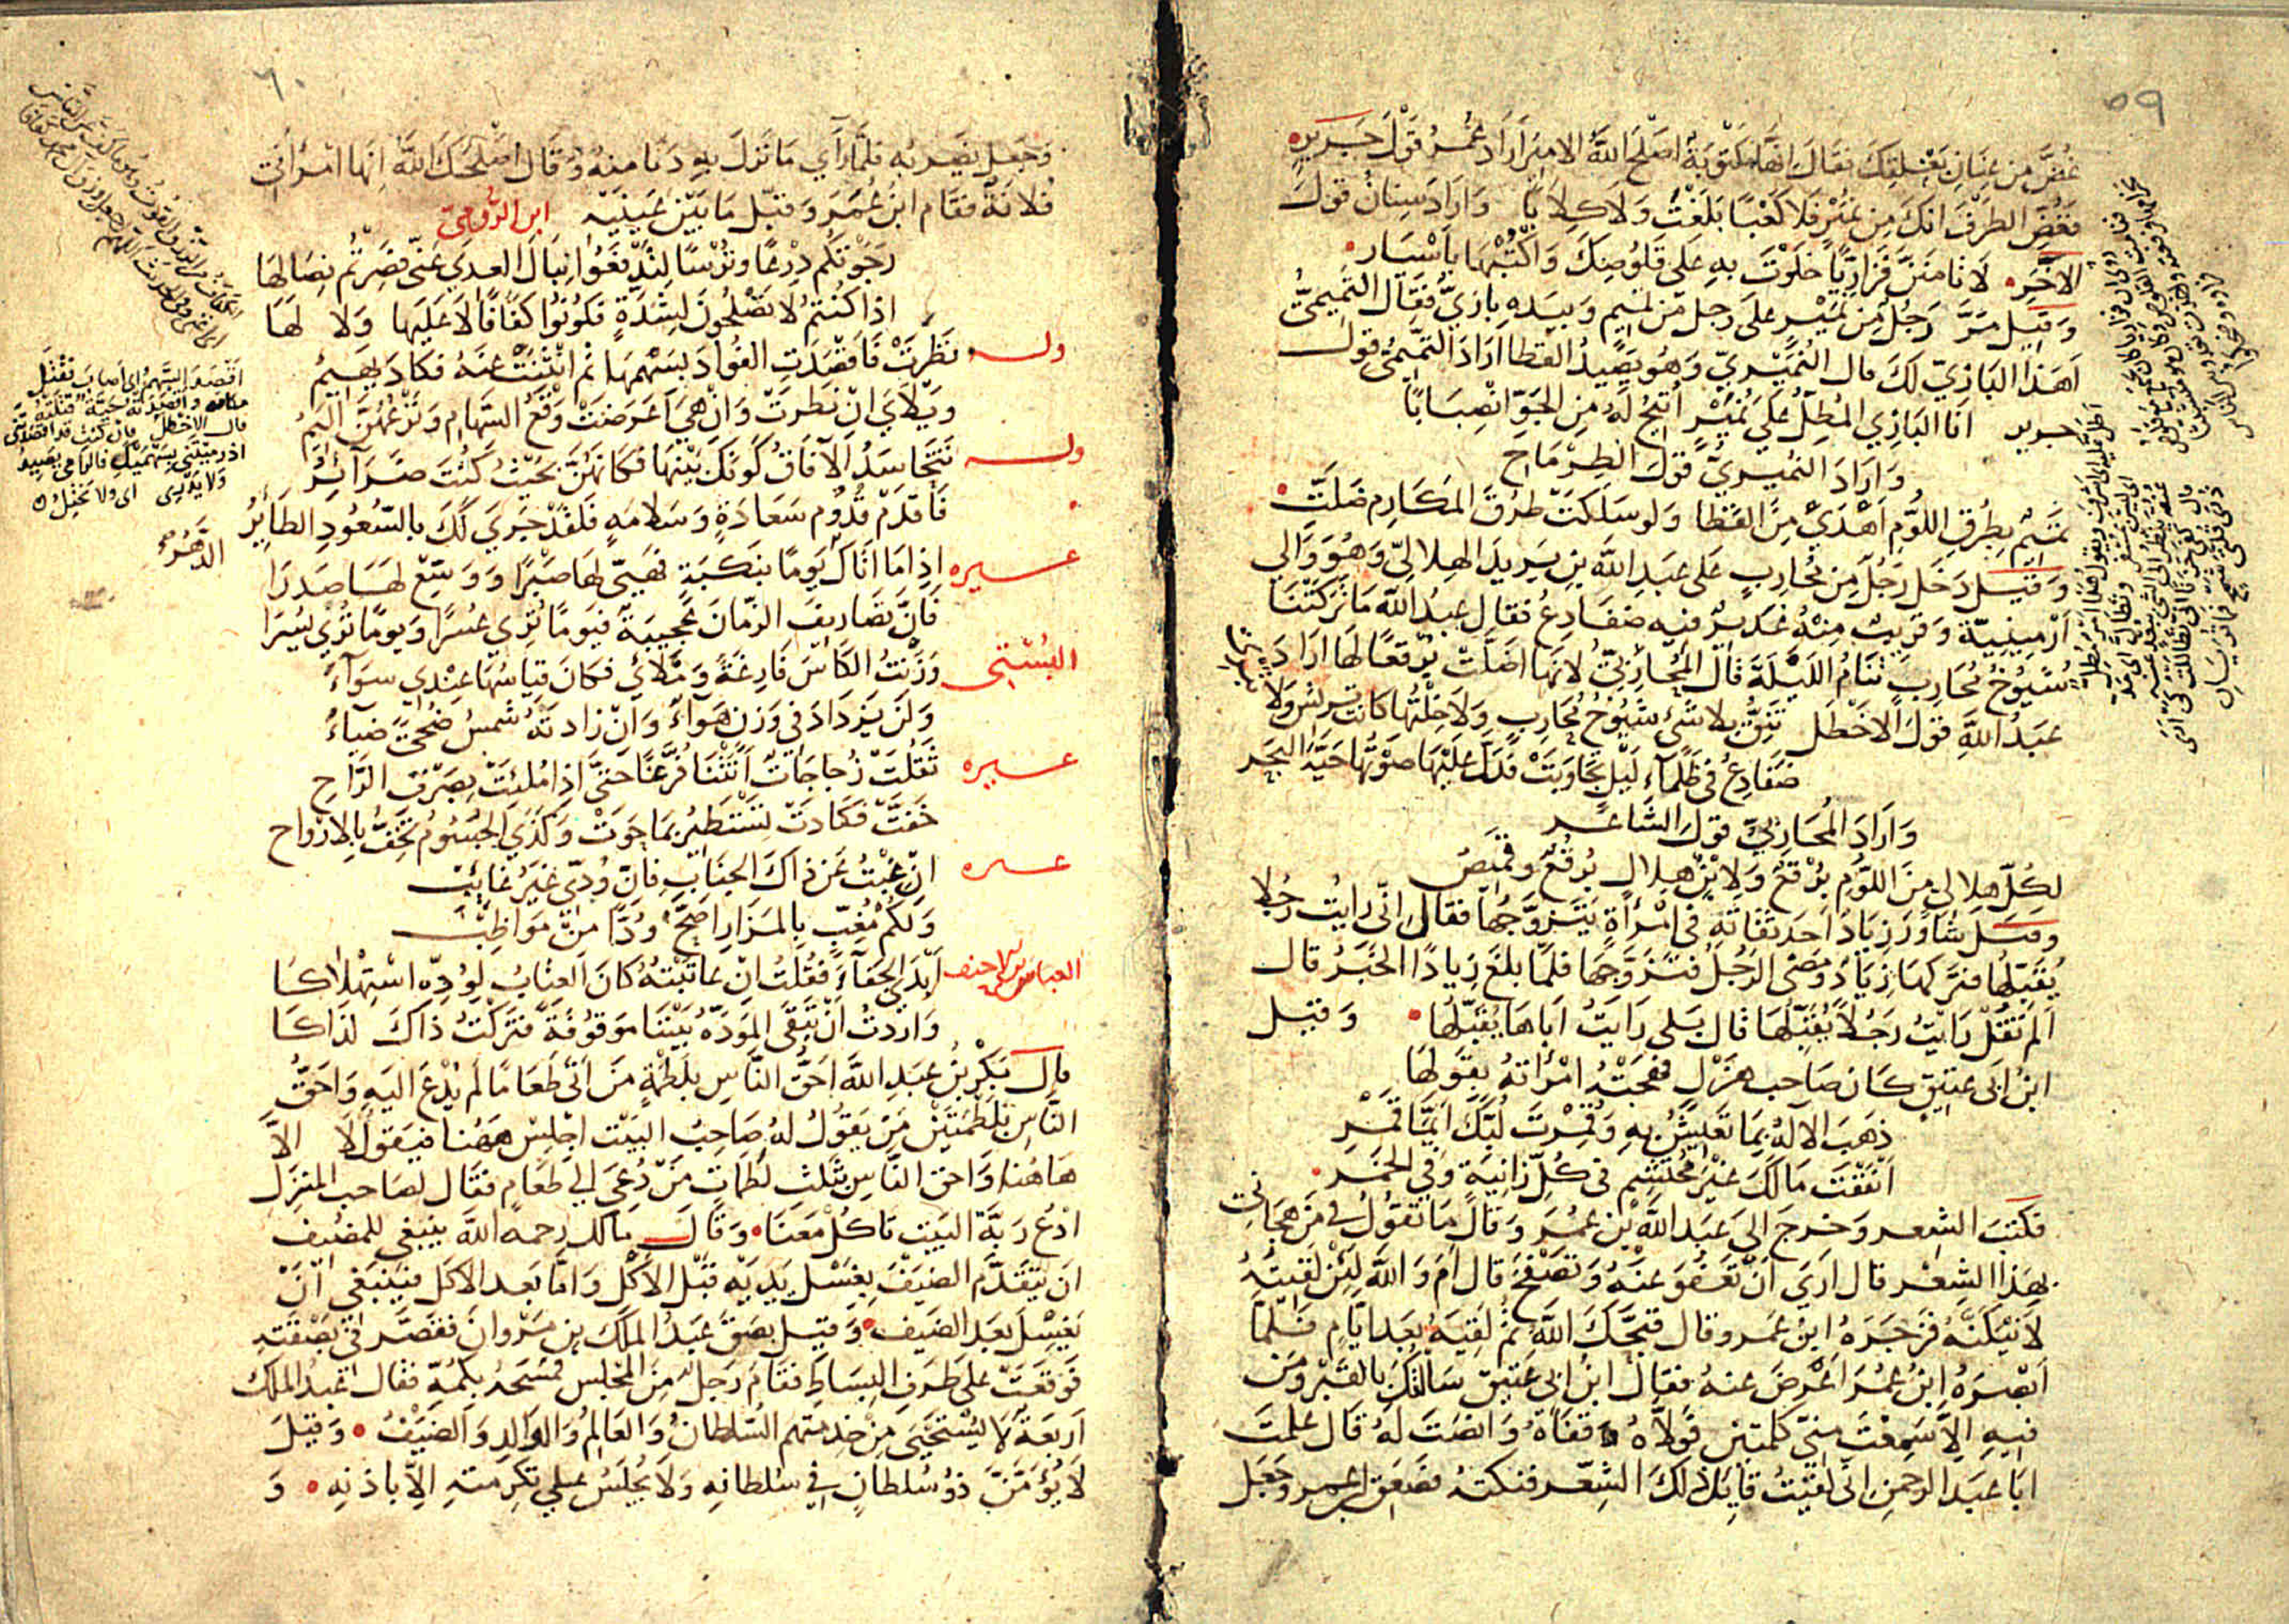 ٥٩
غُضَّ مِن عِنَانِ بَغْلَتِكَ فقَالَ اِنَّهَا مَكتُوبَةٌ اَصْلَحَ اللهُ الامِيْرَ اَرَادَ عُمَرُ قَوْلَ جَرِيرٍ
فَغُضَّ الطَرْفَ اِنَّكَ مِن نُمَيْرٍ فَلَا كَعْبًا بَلَغْتَ وَلَا كِلَابَا وَارَادَ سِنَانٌ قَولَ
الاخَرِ لَا تَامَنَنَّ فَزَارِيًّا خَلَوْتَ بِهِ عَلَى قَلُوصِكَ وَاكْتُبْهَا بِاَسْيَارِ
وَقِيلَ مَرَّ رَجُلٌ مِن نُمَيْرٍ عَلَى رَجُلٍ مِن تَمِيمٍ وَبِيَدِهِ بَازِيٌّ فَقَالَ التَّمِيمِيُّ
اَهَذَا البَازِيّ لَكَ قال النُمَيْرِيّ وَهُوَ يَصِيدُ القَطَا اَرَادَ التَّمِيمِيُّ قول
جرير انَا البَازِي المُطِلُّ عَلَى نُمَيْرٍ اُتِيحُ لَهُ مِنَ الجَوِّ انْصِبَابَا
وَارَادَ النُمَيرِيّ قَولَ الطِرِمَّاحِ
تَمِيمٌ بِطُرْقِ اللُؤمِ اَهْدَى مِنَ القَطَا وَلَو سَلَكَتْ طُرْقَ المَكَارِمِ ضَلَّتِ
وَقِيلَ دَخَلَ رَجُلٌ مِن مُحَارِبٍ عَلَى عَبْدِ اللهِ بنِ يَزِيدَ الهِلَالِيّ وَهُوَ وَالِي
اَرْمِينِيَّة وَقَرِيبٌ مِنْهُ غَدِيرٌ فِيهِ ضَفَادِعُ فقَال عَبدُ اللهِ مَا تَرَكَتْنَا
شُيُوخُ مُحَارِبَ نَنَامُ اللَيْلَةَ قَال المُحَارِبِيُّ لِانَّهَا اَضَلَّتْ بُرْقُعًا لَهَا ارَادَ
عَبدُ اللهِ قَولَ الاخْطَل تَنِقُّ بِلا شَيْءٍ شُيُوخُ مُحَارِبٍ وَلَا خِلْتُهَا كَانَتْ تَرِيشُ وَلَا
ضَفَادِعُ فِي ظَلْمَاءِ لَيْلٍ تَجَاوَبَتْ فَدَلَّ عَلَيْهَا صَوْتُهَا حَيَّةَ البَحْرِ
وَارَادَ المُحَارِبِيّ قَولَ الشَاعِرِ
لِكُلِّ هِلَالِيٍ مِنَ اللُؤمِ بُرْقُعٌ وَلِابْنِ هِلَالٍ بُرْقُعٌ وَقَمِيصُ
وَقِيلَ شَاوَرَ زِيَادٌ اَحَدَ ثِقَاتِهِ فِي امْرَأَةٍ يَتَزَوَّجُهَا فقَال اِنّي رَايْتُ رَجُلًا
يُقَبِّلُهَا فتَرَكَهَا زِيَادٌ وَمَضَى الرَجُلُ فتَزَوَّجَهَا فَلَمَّا بَلَغَ زِيَادًا الخَبَرُ قَال
اَلَمْ تَقُلْ رَايْتُ رَجُلًا يُقَبِّلُهَا قَال بَلَى رَايْتُ اَبَاهَا يُقَبِّلُهَا وَقِيل
ابْنُ اَبِي عَتِيقٍ كَانَ صَاحِبَ هَزْلٍ فهَجَتْهُ امْرَأَتُهُ بِقَوْلِهَا
ذَهَبَ الاِلَهُ بِمَا تَعِيشُ بِهِ وَقُمِرْتَ لُبَّكَ اَيَّمَا قَمْرِ
اَنْفَقْتَ مَالَكَ غَيْرَ مُحْتَشِمٍ فِي كُلِّ زَانِيَةٍ وَفِي الخَمْرِ
فكَتَبَ الشِعر وَخَرجَ الى عَبْدِ اللهِ بْنِ عُمَرَ وَقَالَ مَا تَقُولُ فِي مَن هَجَانِي
بهَذَا الشِعْرِ قال اَرَى اَنْ تَعْفُوَ عَنْهُ وَتَصْفَحَ قَالَ اَمَ وَاللهِ لَئِنْ لَقِيتُهُ
لاَنِيكَنَّهُ فزَجَرَهُ ابنُ عُمَر وقال قَبَّحَكَ اللهُ ثُمَّ لَقِيَهُ بَعْدَ ايَّامٍ فَلَمَّا
اَبْصَرَهُ ابْنُ عُمَرَ اَعْرَضَ عنهُ فقال ابنُ ابي عَتِيق سَالْتُكَ بِالقَبْرِ وَمَن
فِيهِ اِلَّا سَمِعْتَ مِنّي كَلِمَتَيْنِ فَوَلَّاهُ قَفَاهُ وَانْصَتَ لَهُ قَالَ عَلِمْتَ
ابَا عَبْدِ الرحمنِ انّي لَقِيتُ قَايِلَ ذَلِكَ الشِعر فنكتُه فصَعِقَ ابنُ عمر وجَعَل
٦٠
وَجَعل يَضْرِبُه فلَمَّا رَآى مَا نَزَلَ بِهِ دَنَا مِنهُ وَقَال اَصْلَحَكَ اللهُ اِنَّهَا امْرَأَتِي
فُلَانَةُ فقَام ابنُ عُمَرَ وَقبَّلَ مَا بَيْنَ عَيْنَيْهِ ابن الرُّومِي
رَجَوْتُكُم دِرْعًا وَتُرْسًا لِتَدْفَعُوا نِبَالَ العِدَى عَنّي فَصِرْتُم نِصَالَهَا
اِذَا كُنْتُمُ لَا تَصْلُحُونَ لِشِدَّةٍ فَكُونُوا كَفَافًا لَا عَلَيْهَا وَلَا لَهَا
وله نَظَرَتْ فَاَقْصَدَتِ الفُؤَادَ بِسَهْمِهَا ثُمَّ انْثَنَتْ عَنْهُ فكَادَ يَهِيمُ
وَيْلَايَ اِنْ نَظَرَتْ وَاِنْ هِيَ اَعْرَضَتْ وَقْعُ السِّهَامِ وَنَزْعُهُنَّ اَلِيمُ
وله تَتَحَاسَدُ الآفَاقُ كَونَكَ بَيْنَهَا فكَانَهُنَّ بِحَيْثُ كُنْتَ ضَرَآئِرُ
فَاقْدَمْ قُدُومَ سَعَادَةٍ وَسَلَامَةٍ فَلَقَدْ جَرَى لَكَ بِالسُّعُودِ الطَآئِرُ
غيره اِذَا مَا اَتَاكَ يَوْمًا بِنَكْبَةٍ فهَيِّئْ لَهَا صَبْرًا وَوَسِّعْ لَهَا صَدْرَا
فَاِنَّ تَصَارِيفَ الزَّمَانِ عَجِيبَةٌ فيَوْمًا تُرِي عُسْرًا وَيَومًا تُرِي يُسْرَا
البُسْتِي وَزَنْتُ الكَاْسَ فَارِغَةً وَمَلْاَى فكَانَ قِيَاسُهَا عِنْدِي سَوَآءَ
وَلَنْ يَزْدَادَ فِي وَزْنٍ هَوَآءٌ وَاِنْ زَادَتْهُ شَمْسُ ضُحًى ضِيَآءَ
غيره ثَقُلَتْ زُجَاجَاتٌ اَتَتْنَا فُرَّغًا حَتَّى اِذَا مُلِئَتْ بِصِرْفِ الرَّاحِ
خَفَّتْ فكَادَتْ تَسْتَطِيرُ بِمَا حَوَتْ وَكَذَى الجُسُومُ تَخِفُّ بِالاَرْوَاحِ
غيره اِنْ غِبْتُ عَنْ ذَاكَ الجَنَابِ فَاِنَّ وُدّي غَيْرُ غَايِبْ
وَلَكَمْ مُغِبٍّ بِالمَزَارِ اَصَحَّ وُدًّا مِنْ مُوَاظِبْ
العباس بن الاحنف اَبْدَى الجَفَآءَ فَقُلْتُ اِنْ عَاتَبْتُهُ كَانَ العِتَابُ لِوُدِّهِ اسْتِهْلَاكَا
وَاَرَدْتُ اَنْ تَبْقَى المَوَدَّةُ بَيْنَنَا مَوقُوفَةً فَتَرَكْتُ ذَاكَ لِذَاكَا
قال بَكْرُ بْنُ عَبْدِ اللهِ اَحَقُّ النَّاسِ بِلَطْمَةٍ مَنْ اَتَى طَعَامًا لَمْ يُدْعَ اِلَيْهِ وَاَحَقُّ
النَّاسِ بِلَطْمَتَيْنِ مَنْ يَقُولُ لَهُ صَاحِبُ البَيْتِ اِجْلِسْ هَهُنَا فيَقولُ لَا اِلَّا
هَاهُنَا وَاحقُّ النَّاسِ بثَلَثِ لَطَمَاتٍ مَنْ دُعِيَ الى طَعَامٍ فقَال لصَاحِبِ المَنْزِلِ
ادْعُ رَبَّةَ البَيْتِ تَاكُلْ مَعَنَا وَقَالَ مالك رحمهُ الله يَنبَغِي للمضيف
اَن يَتَقَدَّمَ الضَيْفَ بِغَسْلِ يَدَيْهِ قَبْلَ الاَكْلِ وَاَمَّا بَعد الاكل فيَنْبَغِي اَنْ
يَغْسِلَ بَعْدَ الضَيْفِ وَقِيل بَصَقَ عَبْدُ المَلِكِ بن مَرْوَانَ فقَصَّرَ فِي بَصْقَتِهِ
فَوَقَعَتْ عَلى طَرَفِ البِسَاطِ فقَامَ رَجُلٌ مِنَ المَجْلِسِ فمَسَحَهُ بكُمِّهِ فقَال عَبدُ الملك
اَربَعَةٌ لَا يُسْتَحْيَى مِنْ خِدمتهم السُلْطَانُ وَالعَالِمُ وَالوَالِد وَالضَيْفُ وَقِيلَ
لَا يُؤَمَّنَّ ذُو سُلطَانٍ فِي سُلطَانِهِ وَلَا يُجْلَسُ على تَكْرِمَتِهِ اِلَّا بِاذنِهِ وَ
اَقْصَدَ السَّهْمُ اى اَصابَ فقَتَلَ
مكانه وَاَقْصَدَتْهُ حَيَّةٌ قتلَتْهُ
قال الاخطل فان كنت قد اقصدتني
اذ رميتني بسهميك فالرامي يصيد
ولا يدري اى ولا يختل
الدَّهْرُ